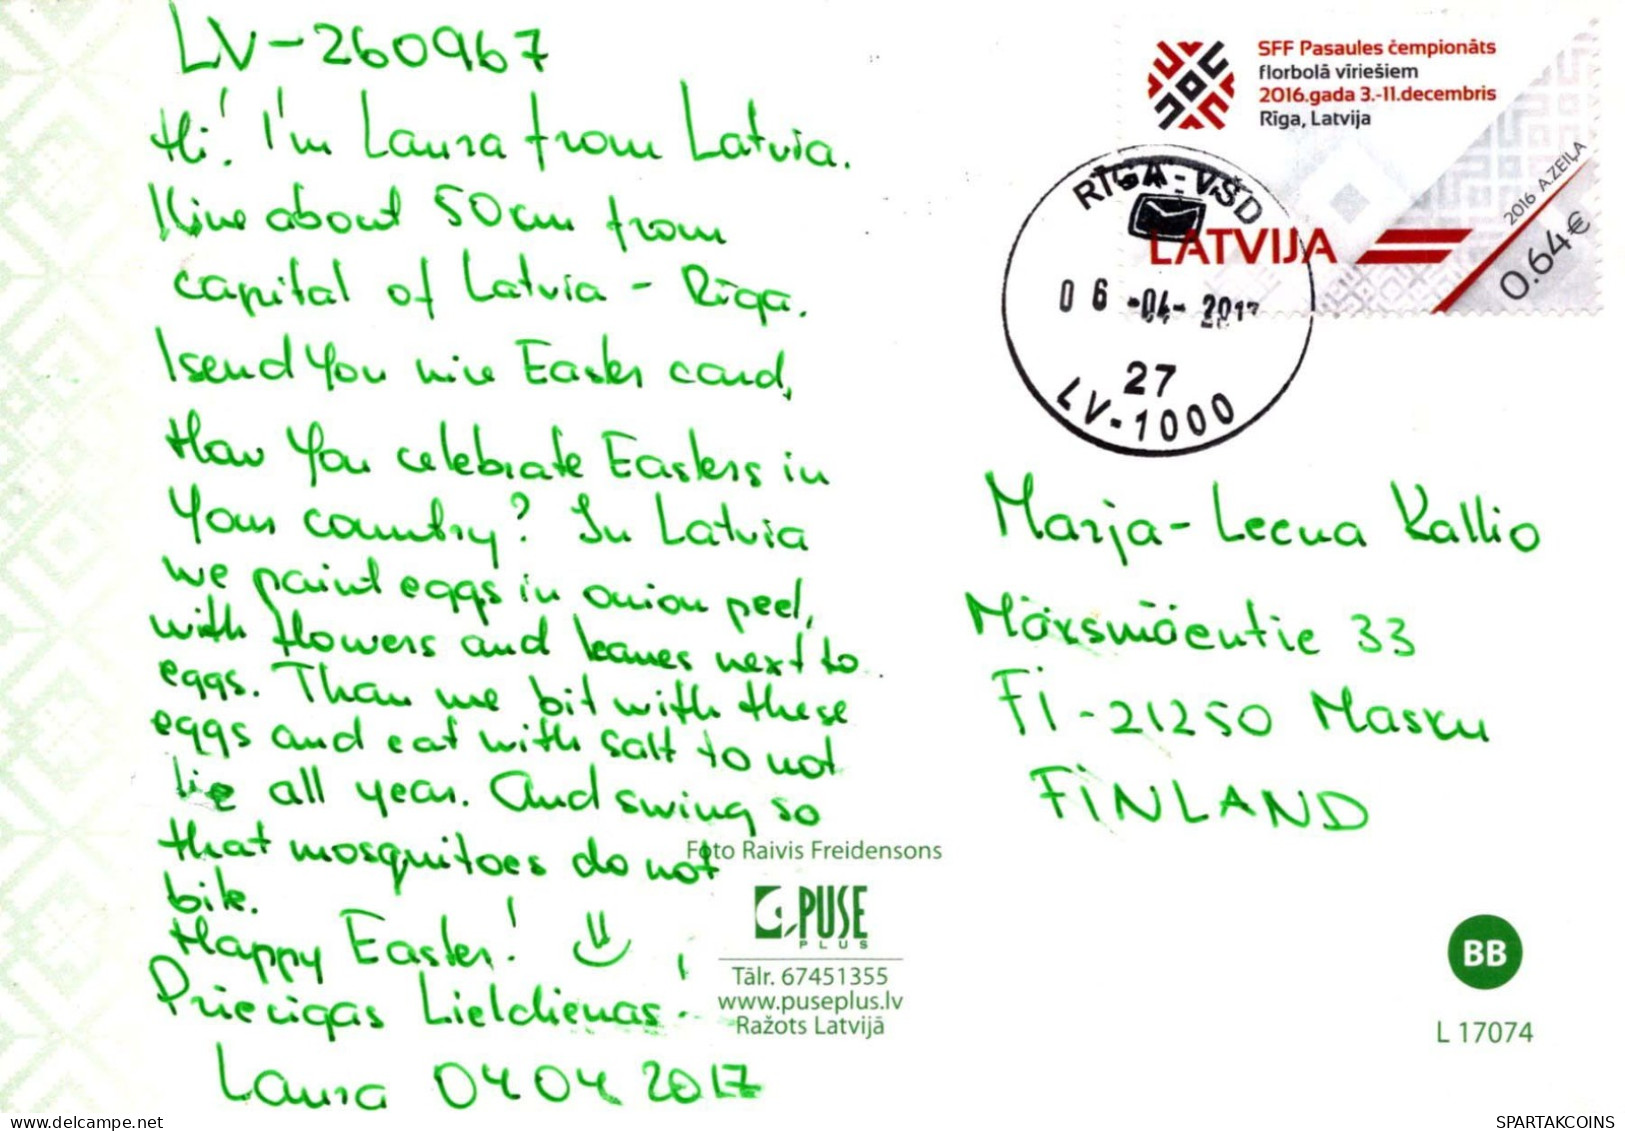 LV-260967
Hi! I'm Laura from Latvia.
I live about 50cm from
capital of Latvia - Rīga.
I send You nice Easter card,
How You celebrate Easters in
Your country? In Latvia
we paint eggs in onion peel,
with flowers and leaves next to
eggs. Than we bit with these
eggs and eat with salt to not
lie all year. And swing so
that mosquitoes do not
bite.
Happy Easter!
Priecīgas Lieldienas!
Laura 04 04 2017
SFF Pasaules čempionāts
florbolā vīriešiem
2016.gada 3.-11.decembris
Rīga, Latvija
LATVIJA
2016 A.ZEIĻA
0.64€
RĪGA-VŠD
06-04-2017
27
LV-1000
Marja-Leena Kallio
Mörsmäentie 33
FI-21250 Masku
FINLAND
Foto Raivis Freidensons
PUSE
PLUS
Tālr. 67451355
www.puseplus.lv
Ražots Latvijā
BB
L 17074
SPARTAKCOINS